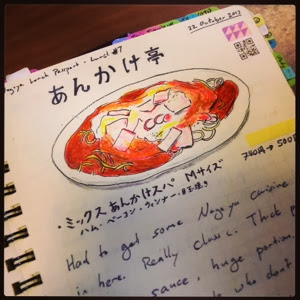 22 October 2013
Nagoya Lunch Passport - Lunch #7
あんかけ亭
・ミックスあんかけスパ Mサイズ
ハム・ベーコン・ウィンナー・目玉焼き
Had to get some Nagoya cuisine
in here. Really classic. Thick
sauce, huge portion
who don't